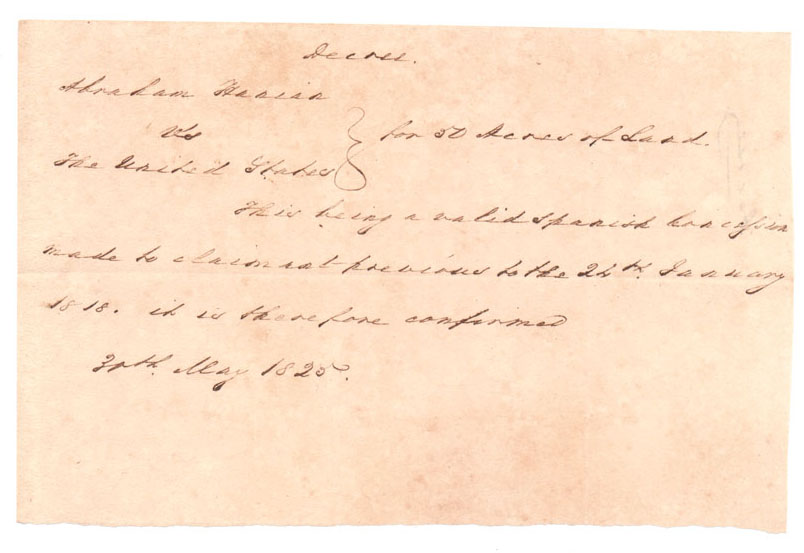 Decree.
Abraham Hanian
vs
The United States
for 50 Acres of Land.
This being a valid Spanish Concession
made to claimant previous to the 24th. January
1818. it is therefore confirmed
30th. May 1825.